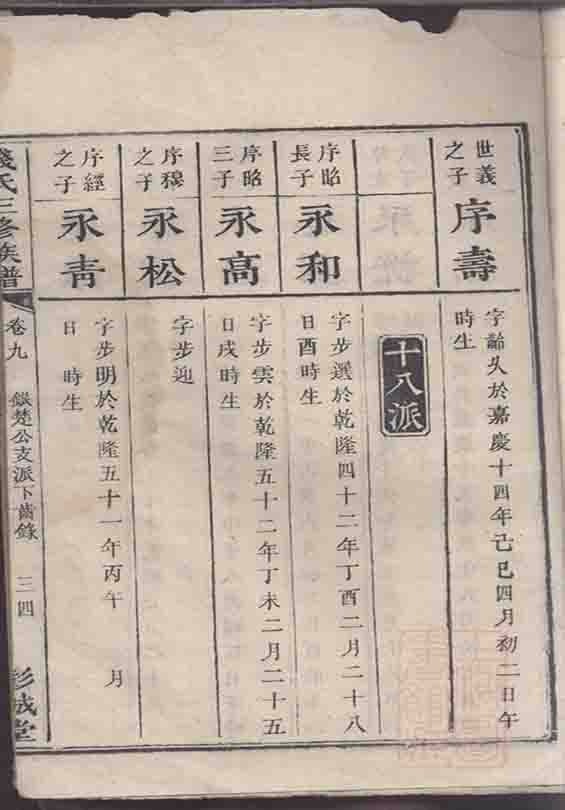 世義
之子
序壽
字齡久於嘉慶十四年己巳四月初二日午
時生
十八派
序昭
長子
永和
字步選於乾隆四十二年丁酉二月二十八
日酉時生
序昭
三子
永高
字步雲於乾隆五十二年丁未二月二十五
日戌時生
序穆
之子
永松
字步迎
序經
之子
永青
字步明於乾隆五十一年丙午 月
日 時生
錢氏三修族譜
卷九
楚公支派下齒錄
三四
彭城堂